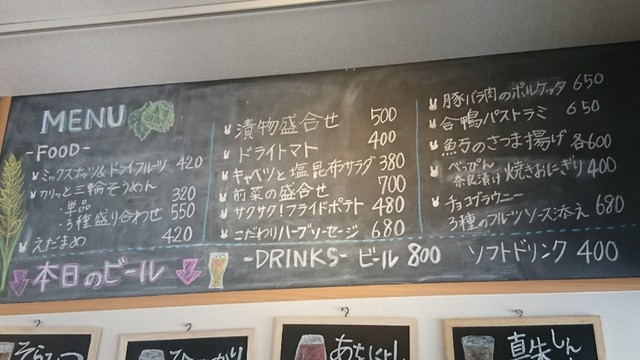 MENU
-FOOD-
ミックスナッツ&ドライフルーツ 420
カリッと三輪そうめん
単品 320
・3種盛り合わせ 550
えだまめ 420
漬物盛合せ 500
ドライトマト 400
キャベツと塩昆布サラダ 380
前菜の盛合せ 700
サクサク!フライドポテト 480
こだわりハーブソーセージ 680
豚バラ肉のポルケッタ 650
合鴨パストラミ 650
魚介のさつま揚げ 各600
べっぴん
奈良漬け 焼きおにぎり 400
チョコブラウニー
3種のフルーツソース添え 680
本日のビール
-DRINKS- ビール 800 ソフトドリンク 400
そらみつ
あをによし